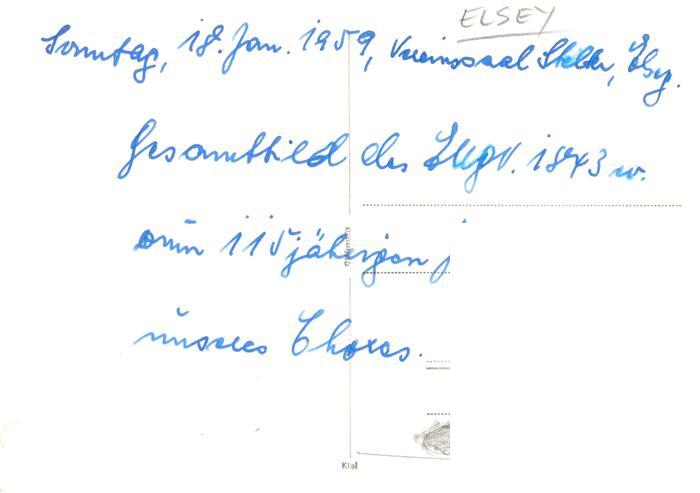 ELSEY
Sonntag, 18. Jan. 1959, Vereinssaal Elsey.
Gesamtbild des 1843 w.
115 jährigen
unseres Chores.
Kiel